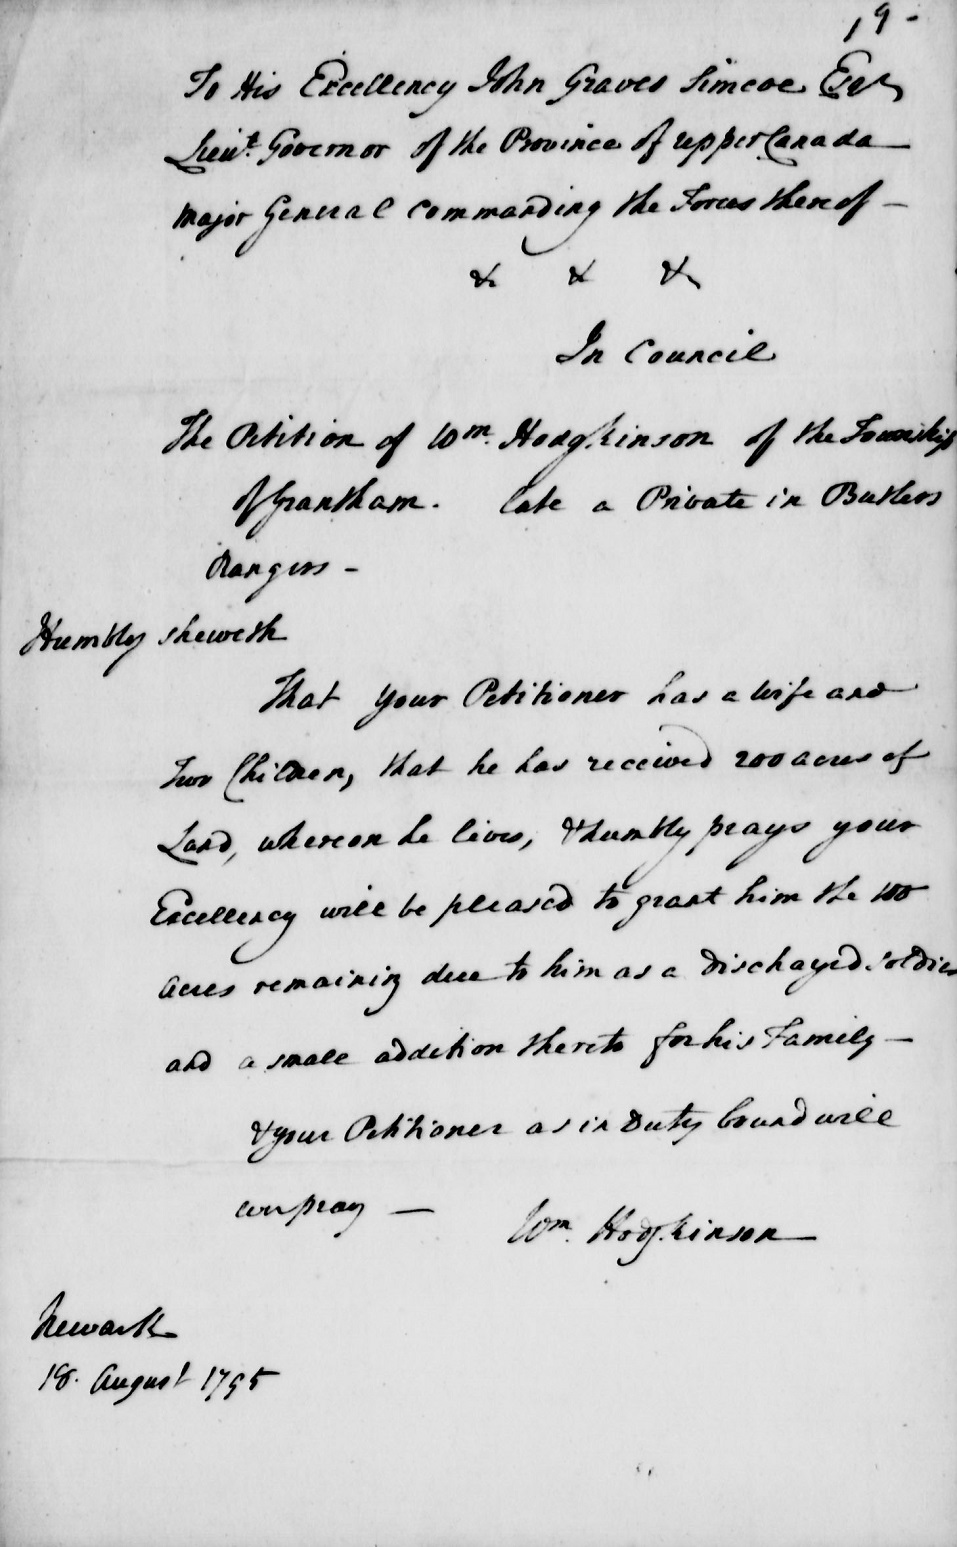 19-
To His Excellency John Graves Simcoe Esqr
Lieut. Governor of the Province of upper Canada
Major General Commanding the Forces thereof -
& & &
In Council
The Petition of Wm. Hodgkinson of the Township
of Grantham. late a Private in Butlers
Rangers -
Humbly sheweth
That your Petitioner has a Wife and
Two Children, that he has received 200 acres of
Land, whereon he lives, & humbly prays your
Excellency will be pleased to grant him the 100
acres remaining due to him as a Discharged soldier
and a small addition thereto for his Family -
& your Petitioner as in Duty bound will
ever pray -
Wm. Hodgkinson
Newark
18. August 1795